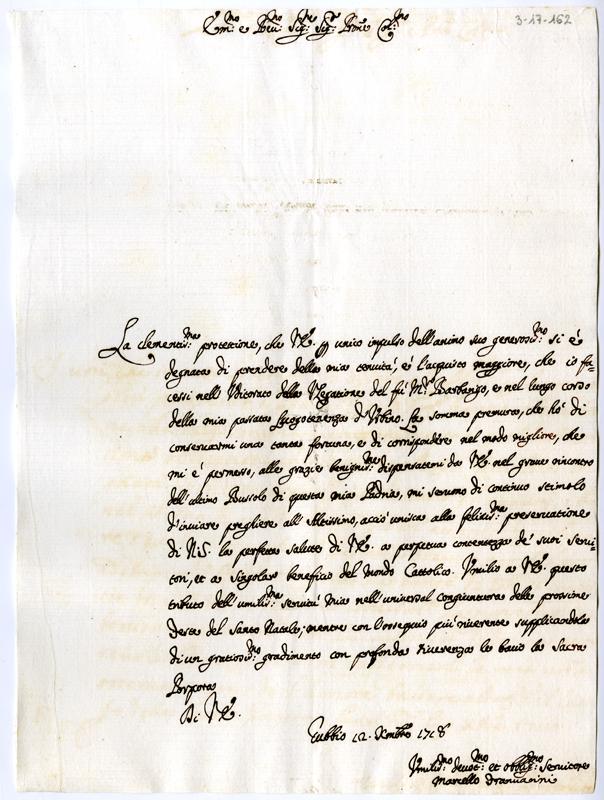 3-17-162
Em:mo e Rev:mo Sig:re Sig:r Pron͂e Col:mo
La clementis:ma protettione, che V.E. p unico impulso dell'animo suo generosis:mo si è
degnata di prendere della mia tenuità, è l'acquisto maggiore, che io fa-
cessi nell' Uditorato della Legatione del fù N.r Barbarigo, e nel lungo corso
della mia passata Luogotenenza d'Urbino. La somma premura, che hò di
conservarmi una tanta fortuna, e di corrispondere nel modo migliore, che
mi è permesso, alle grazie benignis:me dispensatemi da V.E. nel grave rincontro
dell'ultimo Bussolo di questa mia Padria, mi servono di continuo stimolo
d'inviare preghiere all'Altissimo, acciò unisca alla felicis:ma preservatione
di N.S. la perfetta salute di V.E. a perpetua contentezza de' suoi servi-
tori, et a singolar beneficio del Mondo Cattolico. Umilio a V.E. questo
tributo dell'umilis:ma servitù mia nell'universal congiuntura delle prossime
Feste del Santo Natale; mentre con l'ossequio più riverente supplicandola
di un gratiosis:mo gradimento con profonda riverenza le bacio la Sacra
Porpora
Di V.E.
Gubbio 12. Xmbre 1718
Umilis:mo devot:mo et obblig:mo Servitore
Marcello